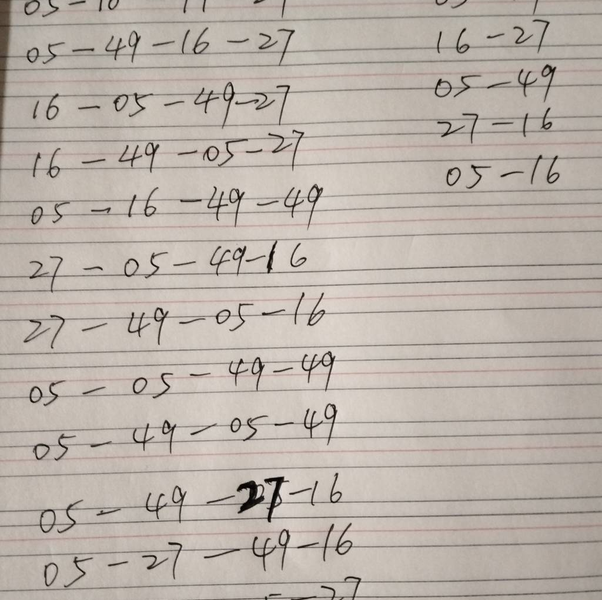 05-49-16-27
16-05-49-27
16-49-05-27
05-16-49-49
27-05-49-16
27-49-05-16
05-05-49-49
05-49-05-49
05-49-27-16
05-27-49-16
16-27
05-49
27-16
05-16